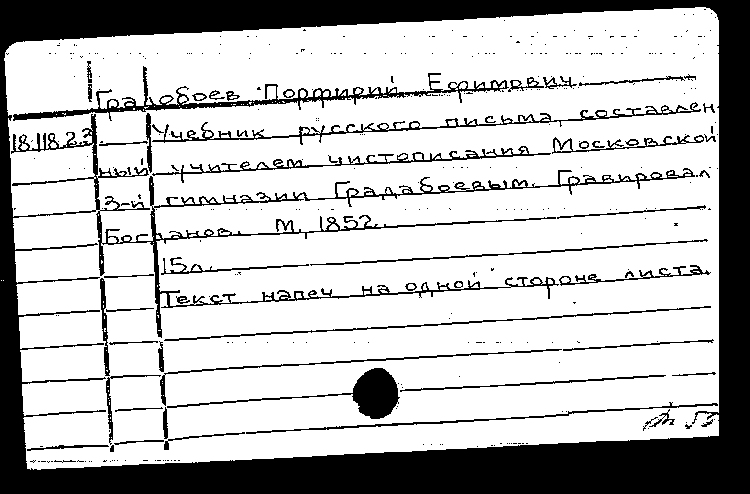 Градобоев Порфирий Ефимович.
18.118.2.3. Учебник русского письма, составлен-
ный учителем чистописания Московской
3-й гимназии Градабоевым. Гравировал
Богданов. М., 1852.
15л.
Текст напеч на одной стороне листа.
53